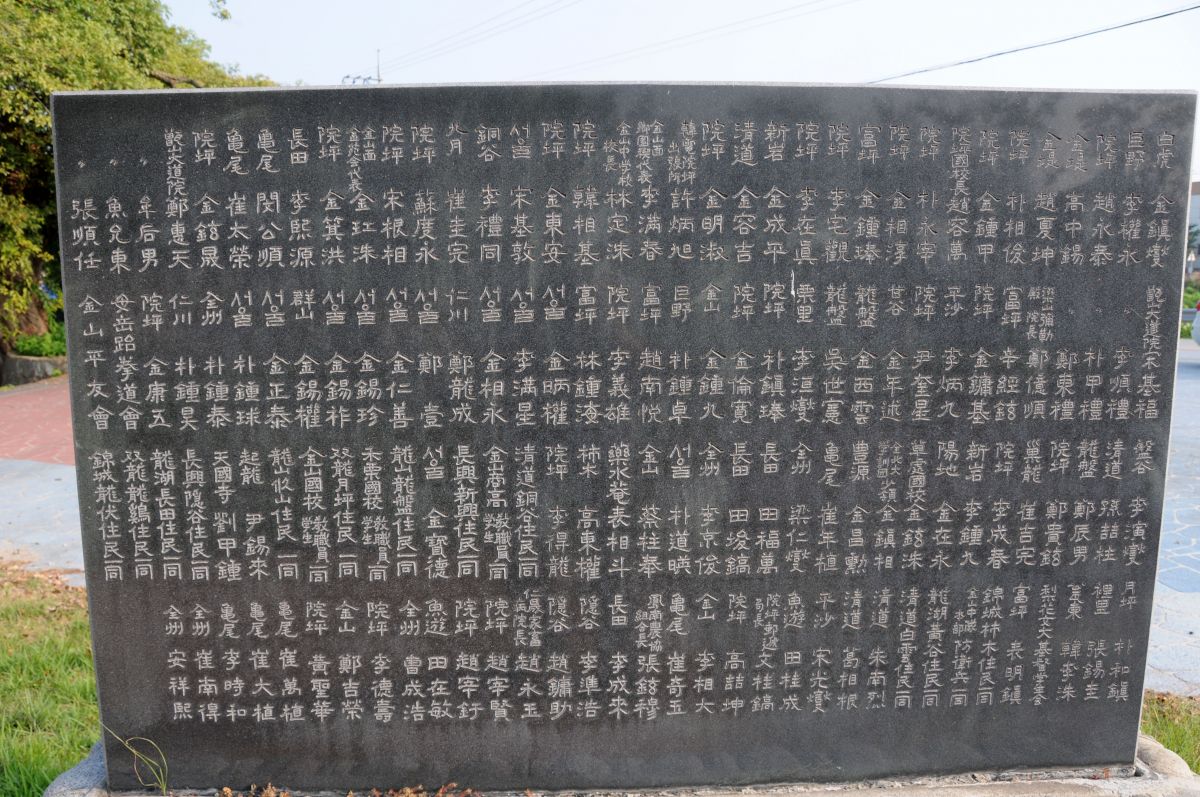 白鹿 金鎭燮 觀大道院 宋基福 盤谷 李演燮 月坪 朴和鎭
巨野 李權永 〃 李順禮 清道 孫喆柱 裡里 張錫圭
院坪 趙永泰 〃 朴甲禮 龍盤 鄭辰男 韓李洙
金堤 高中錫 〃 鄭東禮 院坪 鄭貴鉉
金堤 趙夏坤 彌勒殿院長 鄭億順 巢龍 崔吉完 富坪 表明鎭
院坪 朴相俊 富坪 辛經鉉 院坪 李成春 錦城柿木住民一同
院坪 金鍾甲 院坪 金鏞基 新岩 李鍾九 防衛兵一同
院坪國校長 趙谷萬 平沙 李炳九 陽地 金在永 龍湖黃谷住民一同
院坪 朴永宰 院坪 尹奎星 金鉉洙 清道白雲住民一同
院坪 金相淳 甘谷 金年述 金鎭相 清道 朱南烈
富坪 金鍾琫 龍盤 金西雲 曹源 金昌勳 清道 葛相根
院坪 李宅觀 龍盤 吳世憲 龜尾 崔年植 平沙 宋光燮
院坪 李在眞 栗里 李洹燮 全州 梁仁燮 魚遊 田桂成
新岩 金成平 院坪 朴鎭瑧 長田 田福萬 院坪郵遞局長 文桂鎬
清道 金容吉 院坪 金倫寬 長田 田埈鎬 院坪 高喆坤
院坪 金明淑 金山 金鍾九 全州 李京俊 金山 李相大
韓電院坪出張所 許炳旭 巨野 朴鍾卓 서울 朴道暎 龜尾 崔奇玉
金山面 李満春 富坪 趙南悅 金山 蔡柱奉 鳳南農協組合長 張鉉穆
金山中學校校長 林定洙 院坪 李義雄 藥水庵 表相斗 長田 李成來
院坪 韓相基 富坪 林鍾洝 柿木 高東權 隱谷 李準浩
院坪 金東安 서울 金昞權 院坪 李得龍 隱谷 趙鏞助
서울 宋基敦 서울 李満星 清道銅谷住民一同 趙永玉
銅谷 李禮同 서울 金相永 金山商高 敎職員學生一同 院坪 趙宰賢
八月 崔圭完 仁川 鄭龍成 長興新興住民一同 院坪 趙宰釪
院坪 蘇度永 서울 鄭壹 서울 金寶德 魚遊 田在敏
院坪 宋根相 서울 金仁善 龍山龍盤住民一同 全州 曹成浩
金山面 代表 金玒洙 서울 金錫珍 禾栗國校 敎職員學生一同 院坪 李德壽
院坪 金箕洪 서울 金錫祚 双龍月坪住民一同 金山 鄭吉榮
長田 李熙源 群山 金錫權 金山國校 敎職員學生一同 院坪 黃聖華
龜尾 閔公順 서울 金正泰 龍似山住民一同 龜尾 崔萬植
龜尾 崔太榮 서울 朴鍾球 起龍 尹錫來 龜尾 崔大植
院坪 金鉉晟 全州 朴鍾泰 天國寺 劉甲鍾 龜尾 李時和
觀大道院 鄭惠天 仁川 朴鍾昊 長興隱谷住民一同 全州 崔南得
〃 牟后男 院坪 金康五 龍湖長田住民一同 全州 安祥熙
〃 魚允東 母岳跆拳道會 双龍龍鷄住民一同
〃 張順任 金山平友會 錦城龍伏住民一同